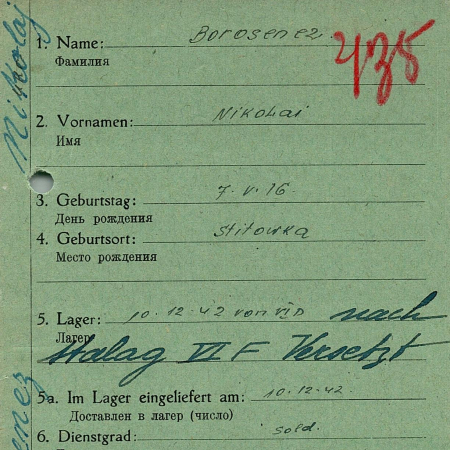 Nikolaj
enez
1. Name: Borosenez
Фамилия
435
2. Vornamen: Nikolai
Имя
3. Geburtstag: 7.V.16.
День рождения
4. Geburtsort: Stitowka
Место рождения
5. Lager: 10.12.42 von VID nach
Лагер
Stalag VI F Versetzt
5a. Im Lager eingeliefert am: 10.12.42.
Доставлен в лагер (число)
6. Dienstgrad: Sold.